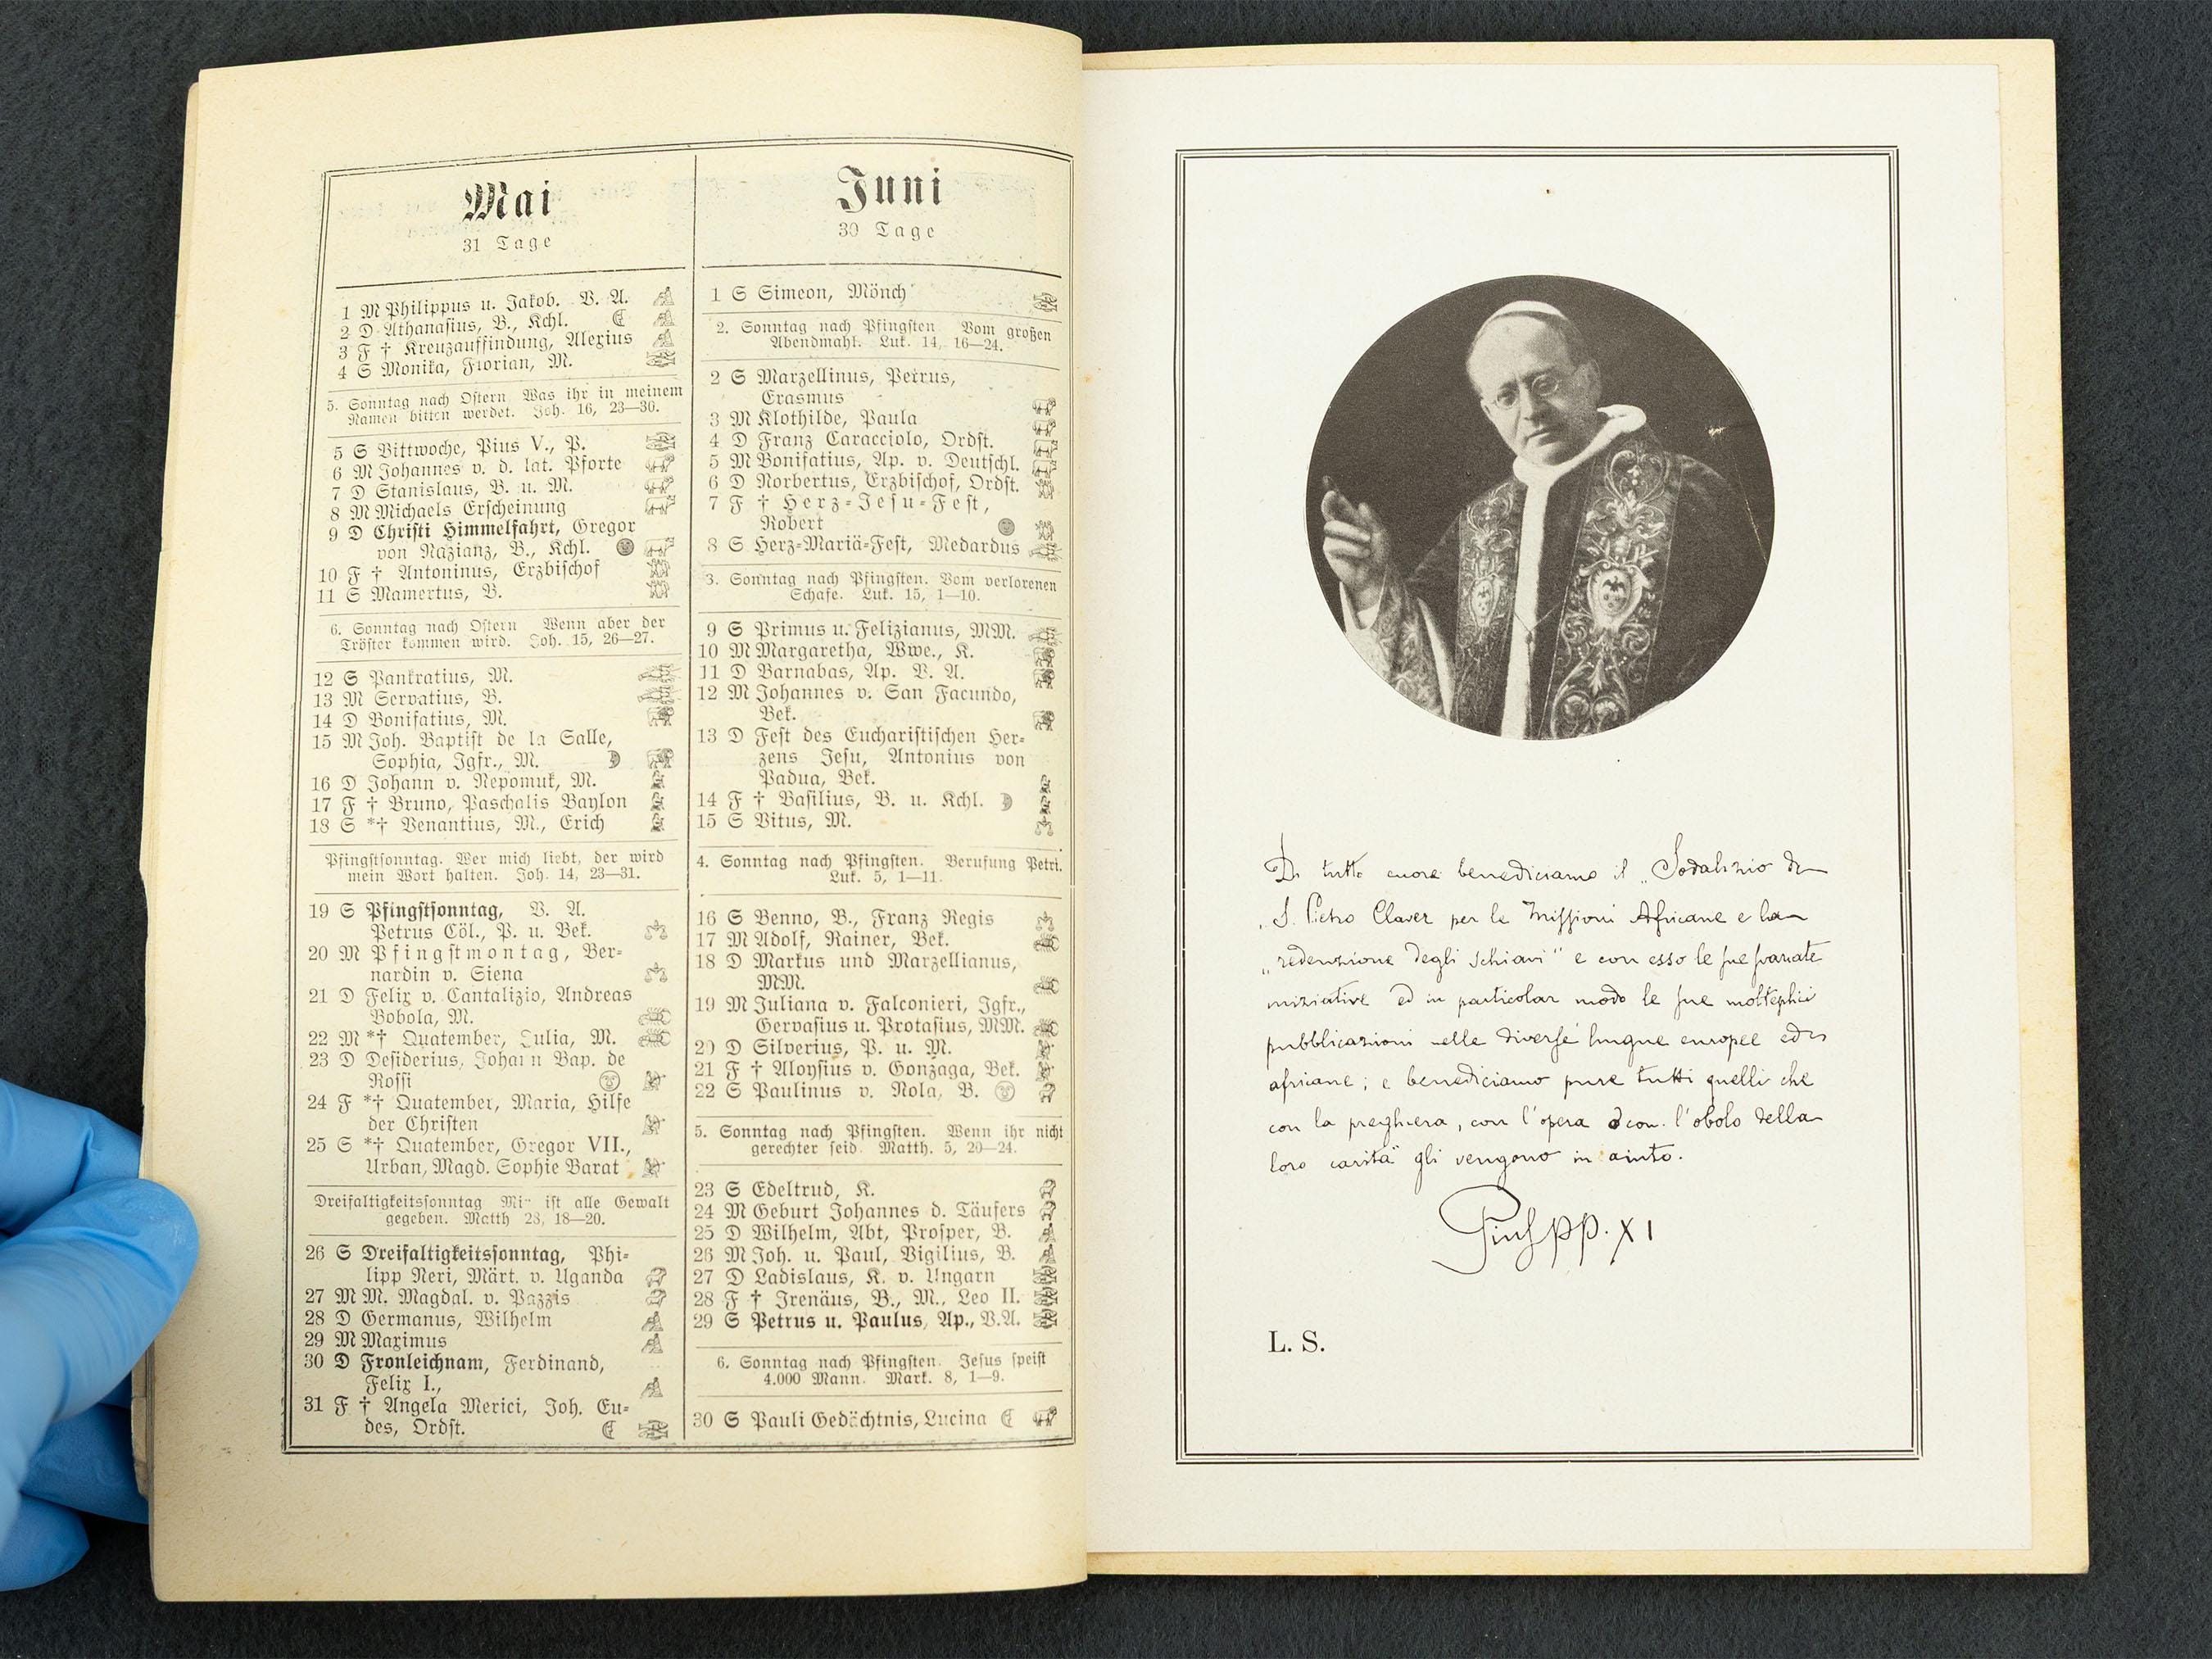 Mai
31 Tage
1 M Philippus u. Jakob. V. A.
2 D Athanasius, B., Kchl.
3 F † Kreuzauffindung, Alexius
4 S Monika, Florian, M.
5. Sonntag nach Ostern Was ihr in meinem
Namen bitten werdet. Joh. 16, 23—30.
5 S Bittwoche, Pius V., P.
6 M Johannes v. d. lat. Pforte
7 D Stanislaus, B. u. M.
8 M Michaels Erscheinung
9 D Christi Himmelfahrt, Gregor
von Nazianz, B., Kchl.
10 F † Antoninus, Erzbischof
11 S Mamertus, B.
6. Sonntag nach Ostern Wenn aber der
Tröster kommen wird. Joh. 15, 26—27.
12 S Pankratius, M.
13 M Servatius, B.
14 D Bonifatius, M.
15 M Joh. Baptist de la Salle,
Sophia, Igfr., M.
16 D Johann v. Nepomuk, M.
17 F † Bruno, Paschalis Baylon
18 S *† Venantius, M., Erich
Pfingstsonntag. Wer mich liebt, der wird
mein Wort halten. Joh. 14, 23—31.
19 S Pfingstsonntag, V. A.
Petrus Cöl., P. u. Bek.
20 M Pfingstmontag, Ber-
nardin v. Siena
21 D Felix v. Cantalizio, Andreas
Bobola, M.
22 M *† Quatember, Julia, M.
23 D Desiderius, Johann Bap. de
Rossi
24 F *† Quatember, Maria, Hilfe
der Christen
25 S *† Quatember, Gregor VII.,
Urban, Magd. Sophie Barat
Dreifaltigkeitssonntag Mir ist alle Gewalt
gegeben. Matth 28, 18—20.
26 S Dreifaltigkeitssonntag, Phi-
lipp Neri, Märt. v. Uganda
27 M M. Magdal. v. Pazzis
28 D Germanus, Wilhelm
29 M Maximus
30 D Fronleichnam, Ferdinand,
Felix I.,
31 F † Angela Merici, Joh. Eu-
des, Ordst.
Juni
30 Tage
1 S Simeon, Mönch
2. Sonntag nach Pfingsten Vom großen
Abendmahl. Luk. 14, 16—24.
2 S Marzellinus, Petrus,
Erasmus
3 M Klothilde, Paula
4 D Franz Caracciolo, Ordst.
5 M Bonifatius, Ap. v. Deutschl.
6 D Norbertus, Erzbischof, Ordst.
7 F † Herz-Jesu-Fest,
Robert
8 S Herz-Mariä-Fest, Medardus
3. Sonntag nach Pfingsten. Vom verlorenen
Schafe. Luk. 15, 1—10.
9 S Primus u. Felizianus, MM.
10 M Margaretha, Wwe., K.
11 D Barnabas, Ap. V. A.
12 M Johannes v. San Facundo,
Bek.
13 D Fest des Eucharistischen Her-
zens Jesu, Antonius von
Padua, Bek.
14 F † Basilius, B. u. Kchl.
15 S Vitus, M.
4. Sonntag nach Pfingsten. Berufung Petri.
Luk. 5, 1—11.
16 S Benno, B., Franz Regis
17 M Adolf, Rainer, Bek.
18 D Markus und Marzellianus,
MM.
19 M Juliana v. Falconieri, Igfr.,
Gervasius u. Protasius, MM.
20 D Silverius, P. u. M.
21 F † Aloysius v. Gonzaga, Bek.
22 S Paulinus v. Nola, B.
5. Sonntag nach Pfingsten. Wenn ihr nicht
gerechter seid. Matth. 5, 20—24.
23 S Edeltrud, K.
24 M Geburt Johannes d. Täufers
25 D Wilhelm, Abt, Prosper, B.
26 M Joh. u. Paul, Vigilius, B.
27 D Ladislaus, K. v. Ungarn
28 F † Irenäus, B., M., Leo II.
29 S Petrus u. Paulus, Ap., V. A.
6. Sonntag nach Pfingsten. Jesus speist
4.000 Mann. Mark. 8, 1—9.
30 S Pauli Gedächtnis, Lucina
Di tutto cuore benediciamo il „Sodalizio di
S. Pietro Claver per le Missioni Africane e la
„redenzione degli schiavi“ e con esso le sue svariate
iniziative ed in particolar modo le sue molteplici
pubblicazioni nelle diverse lingue europee ed
africane; e benediciamo pure tutti quelli che
con la preghiera, con l'opera o con l'obolo della
loro carità gli vengono in aiuto.
Pius pp. XI
L. S.